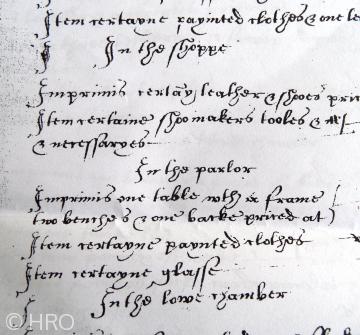 Item certayne paynted clothes & one le
In the shoppe
Imprimis certay leather & shoes pric
Item certaine shoomakers tooles &
& necessaryes
In the parlor
Imprimis one table wth a frame
two benches & one backe priced at
Item certayne paynted clothes
Item certayne glasse
In the lowe chamber
© HRO